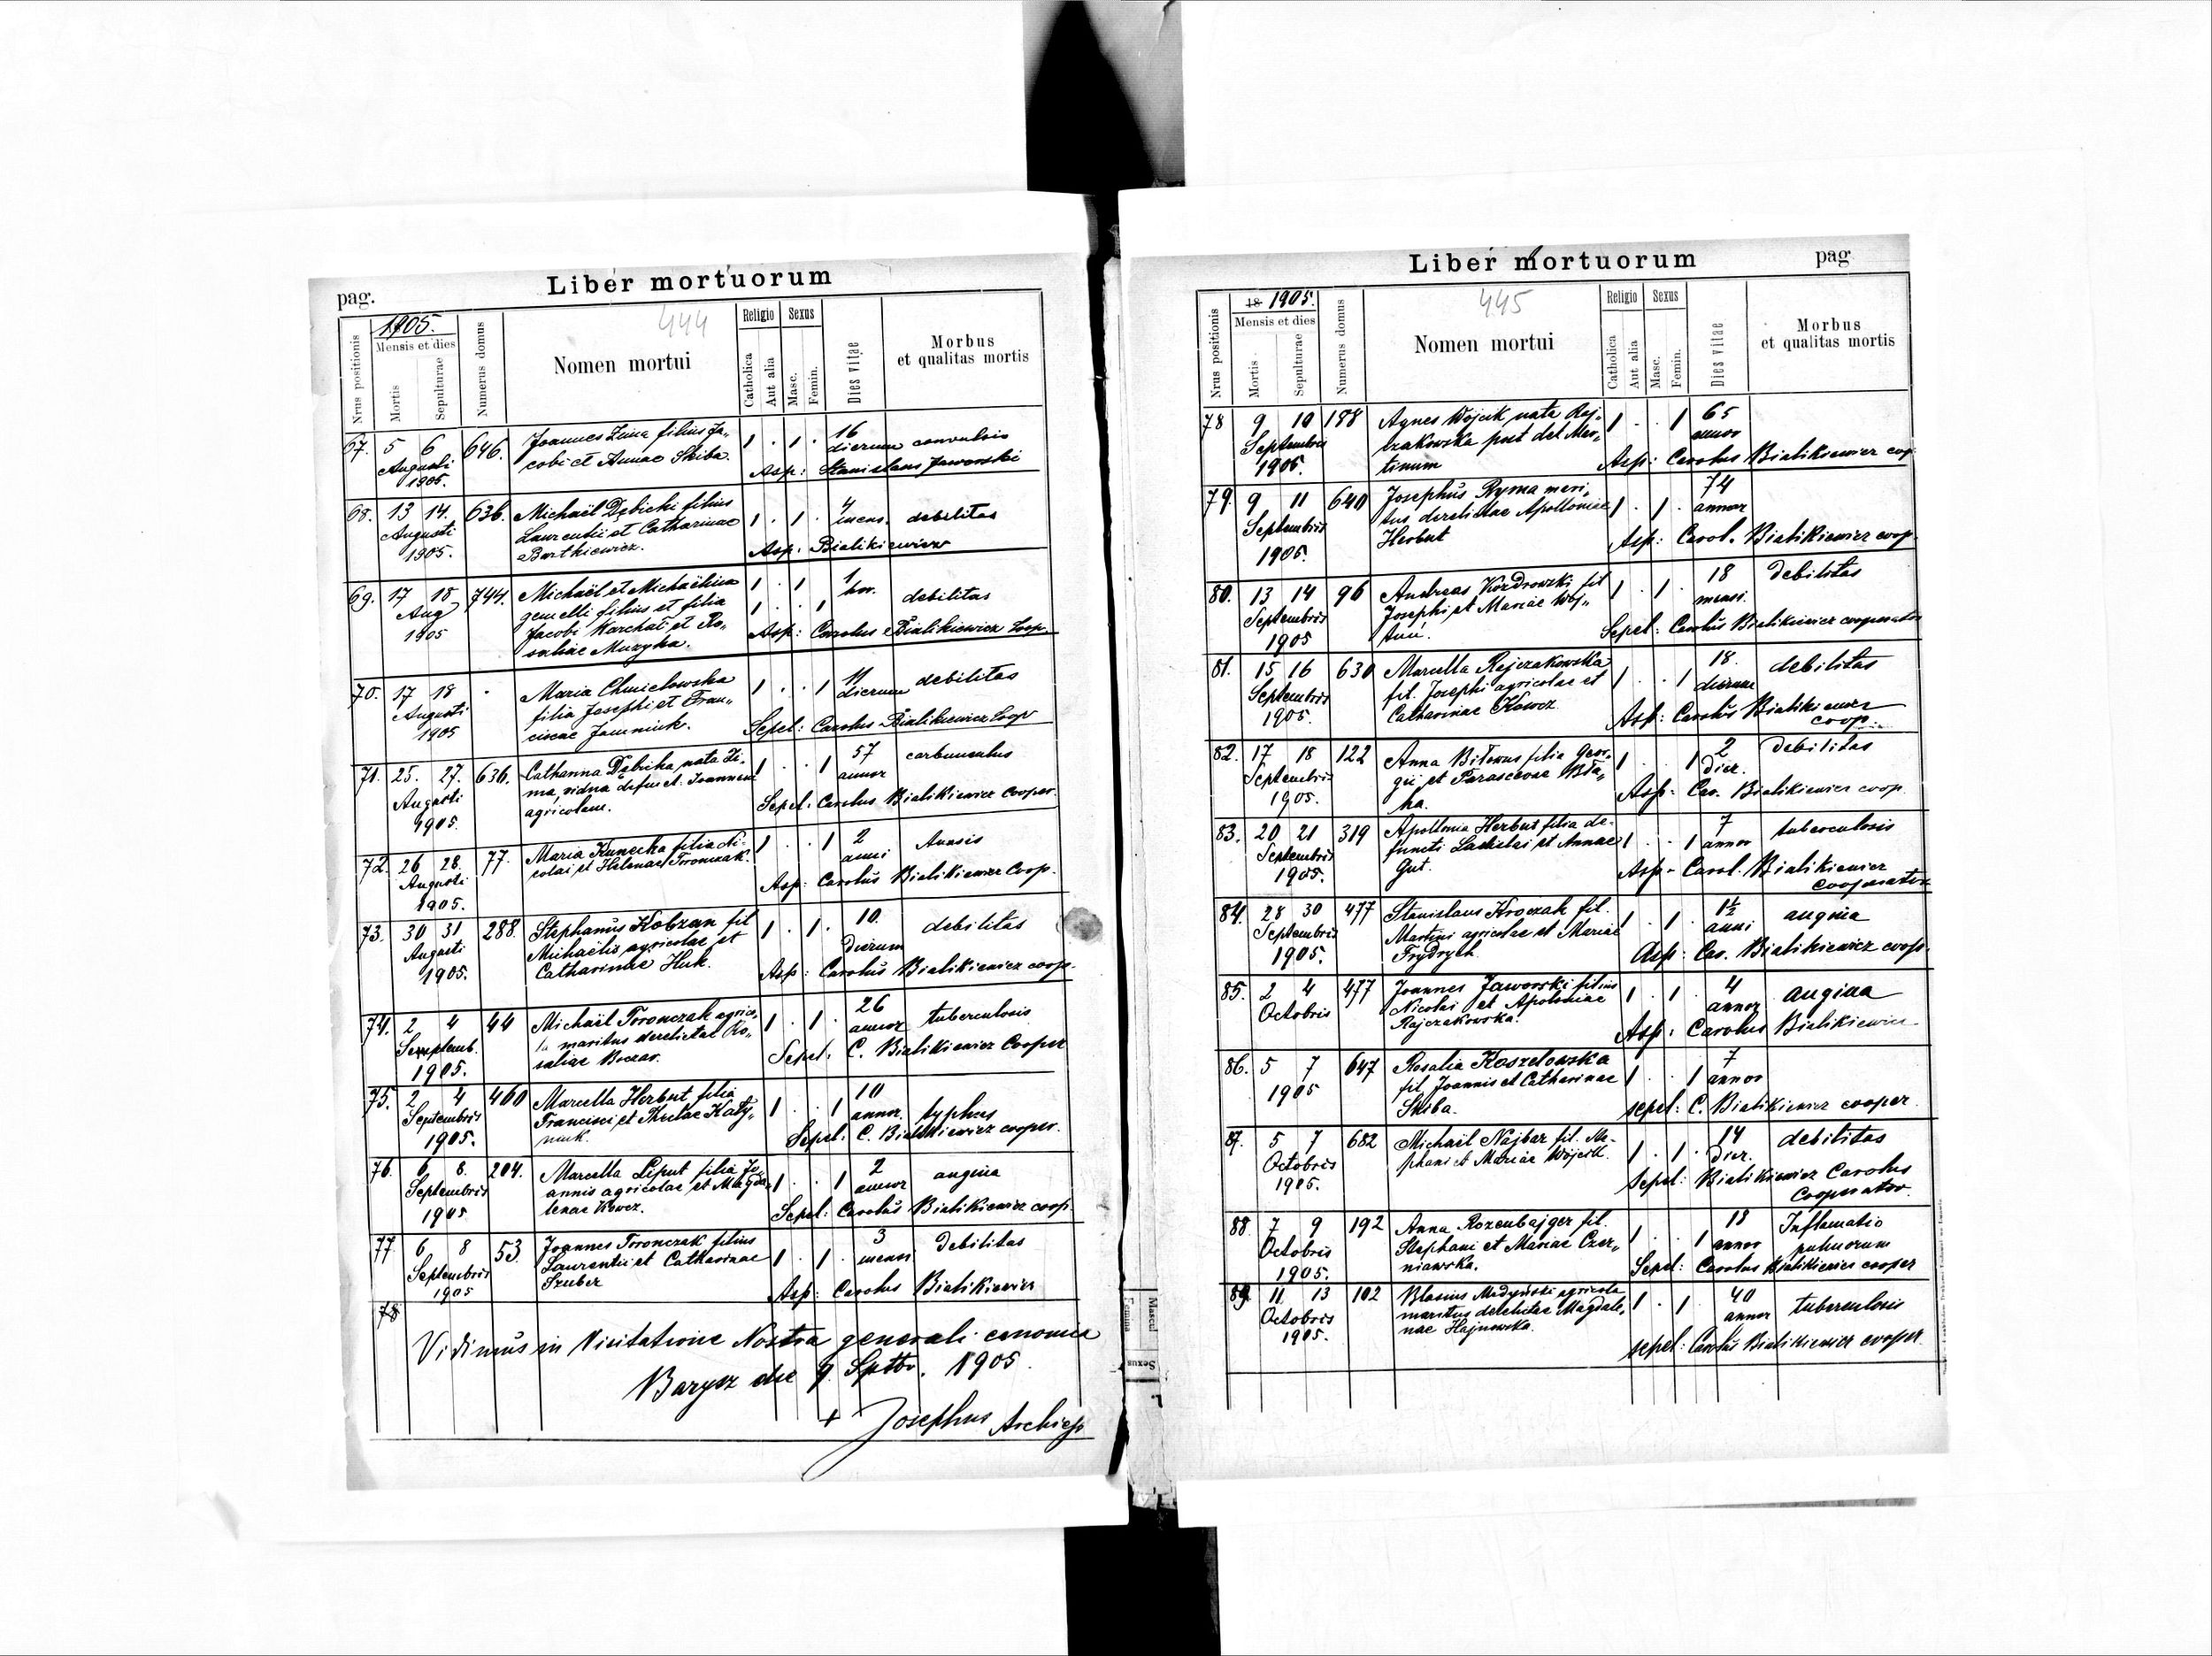 pag.
Liber mortuorum
1905.
444
Nrus positionis
Mensis et dies
Mortis
Sepulturae
Numerus domus
Nomen mortui
Religio
Catholica
Aut alia
Sexus
Masc.
Femin.
Dies vitae
Morbus
et qualitas mortis
67. 5 6 646. Joannes Zima filius Ja„ 1 . 1 . 16
Augusti cobi et Annae Skiba. dierum convulsio
1905. Asp: Stanislaus Jaworski
68. 13 14. 636. Michaël Dębicki filius 4
Augusti Laurentii et Catharinae 1 . 1 . mens. debilitas
1905. Bartkiewicz. Asp: Bialikiewicz
69. 17 18 744. Michaël et Michaëlina 1 . 1 1
Aug gemelli filius et filia 1 . . 1 hor. debilitas
1905 Jacobi Marchat et Ro„ Asp: Carolus Bialikiewicz Coop.
saliae Muzyka.
70. 17 18 . Maria Chmielowska 1 . . 1 11
Augusti filia Josephi et Fran„ dierum debilitas
1905 ciscae Jamniuk. Sepel: Carolus Bialikiewicz Coop
71. 25. 27. 636. Catharina Dębicka nata Zi„ 1 . . 1 57 carbunculus
Augusti ma, vidua defunct. Joannem annor
1905. agricolam. Sepel: Carolus Bialikiewicz Cooper.
72. 26 28. 77. Maria Kunecka filia Ni„ 1 . . 1 2 tussis
Augusti colai et Helenae Toronczak. anni
1905. Asp: Carolus Bialikiewicz Coop.
73. 30 31 288. Stephanus Kobzan fil 1 . 1 . 10.
Augusti Michaëlis agricolae et Dierum debilitas
1905. Catharinae Huk. Asp: Carolus Bialikiewicz coop.
74. 2 4 44 Michaël Toronczak agrico„ 1 . 1 . 26
Septemb. la maritus derelictae Ro„ annor tuberculosis
1905. saliae Boczar. Sepel: C. Bialikiewicz Cooper
75. 2 4 460 Marcella Herbut filia 1 . . 1 10
Septembris Francisci et Theclae Katy„ annor. typhus
1905. niuk. Sepel: C. Bialikiewicz cooper.
76. 6 8. 204. Marcella Liput filia Jo„ 1 . . 1 2 angina
Septembris annis agricolae et Magda„ annor
1905 lenae Kowcz. Sepel: Carolus Bialikiewicz coop.
77 6 8 53. Joannes Toronczak filius 1 . 1 . 3
Septembris Laurentii et Catharinae mensi Debilitas
1905 Szuber Asp: Carolus Bialikiewicz
78
Vidimus in Visitatione Nostra generali canonica
Barysz die 9. Sptbr. 1905.
+ Josephus Archiep
Liber mortuorum
pag
18 1905.
445
Nrus positionis
Mensis et dies
Mortis
Sepulturae
Numerus domus
Nomen mortui
Religio
Catholica
Aut alia
Sexus
Masc.
Femin.
Dies vitae
Morbus
et qualitas mortis
78 9 10 188 Agnes Wójcik nata Raj„ 1 . . 1 65
Septembris czakowska post def Mar„ annor
1905. tinum Asp: Carolus Bialikiewicz coop
79. 9 11 640 Josephus Ryma mari„ 74
Septembris tus derelictae Apolloniae 1 . 1 . annor
1905. Herbut Asp: Carol. Bialikiewicz coop.
80. 13 14 96 Andreas Kozdrowzki fil 1 . 1 . 18 Debilitas
Septembris Josephi et Mariae Woj„ mensi.
1905 Sepel: Carolus Bialikiewicz cooperator
81. 15 16 630 Marcella Rajczakowska 18. debilitas
Septembris fil. Josephi agricolae et 1 . . 1 dierum
1905. Catharinae Kowcz Asp: Carolus Bialikiewicz
coop.
82. 17 18 122 Anna Bilowus filia Geor„ 1 . . 1 2 Debilitas
Septembris gii et Parasceviae dier.
1905. ha. Asp: Car. Bialikiewicz coop.
83. 20 21 319 Apollonia Herbut filia de„ 7 tuberculosis
Septembris functi Ladislai et Annae 1 . . 1 annor
1905. Gut. Asp- Carol. Bialikiewicz
cooperator
84. 28 30 477 Stanislaus Kroczak fil. 1 . 1 . 1½ angina
Septembris Martini agricolae et Mariae anni
1905. Frydrych Asp: Car. Bialikiewicz coop.
85. 2 4 477 Joannes Jaworski filius 1 . 1 . 4
Octobris Nicolai et Apoloniae annor angina
Rajczakowska. Asp: Carolus Bialikiewicz
86. 5 7 647 Rosalia Koszelowska 7
1905 fil. Joannis et Catharinae 1 . . 1 annor
Skiba. sepel: C. Bialikiewicz cooper.
87. 5 7 682 Michaël Najbar fil. Ste- 14 debilitas
Octobris phani et Mariae Wójcik. 1 . 1 . dier.
1905. sepel: Bialikiewicz Carolus
Cooperator.
88. 7 9 192 Anna Rozenbajger fil. 1 . . 1 18 Inflamatio
Octobris Stephani et Mariae Czer„ annor pulmorum
1905. niawska. Sepel: Carolus Bialikiewicz cooper
89. 11. 13 102 Blasius Madyński agricola 40
Octobris maritus derelictae Magdale„ 1 . 1 . annor tuberculosis
1905. nae Hajnowska. sepel: Carolus Bialikiewicz cooper.
Mascul
Femina
Sexus